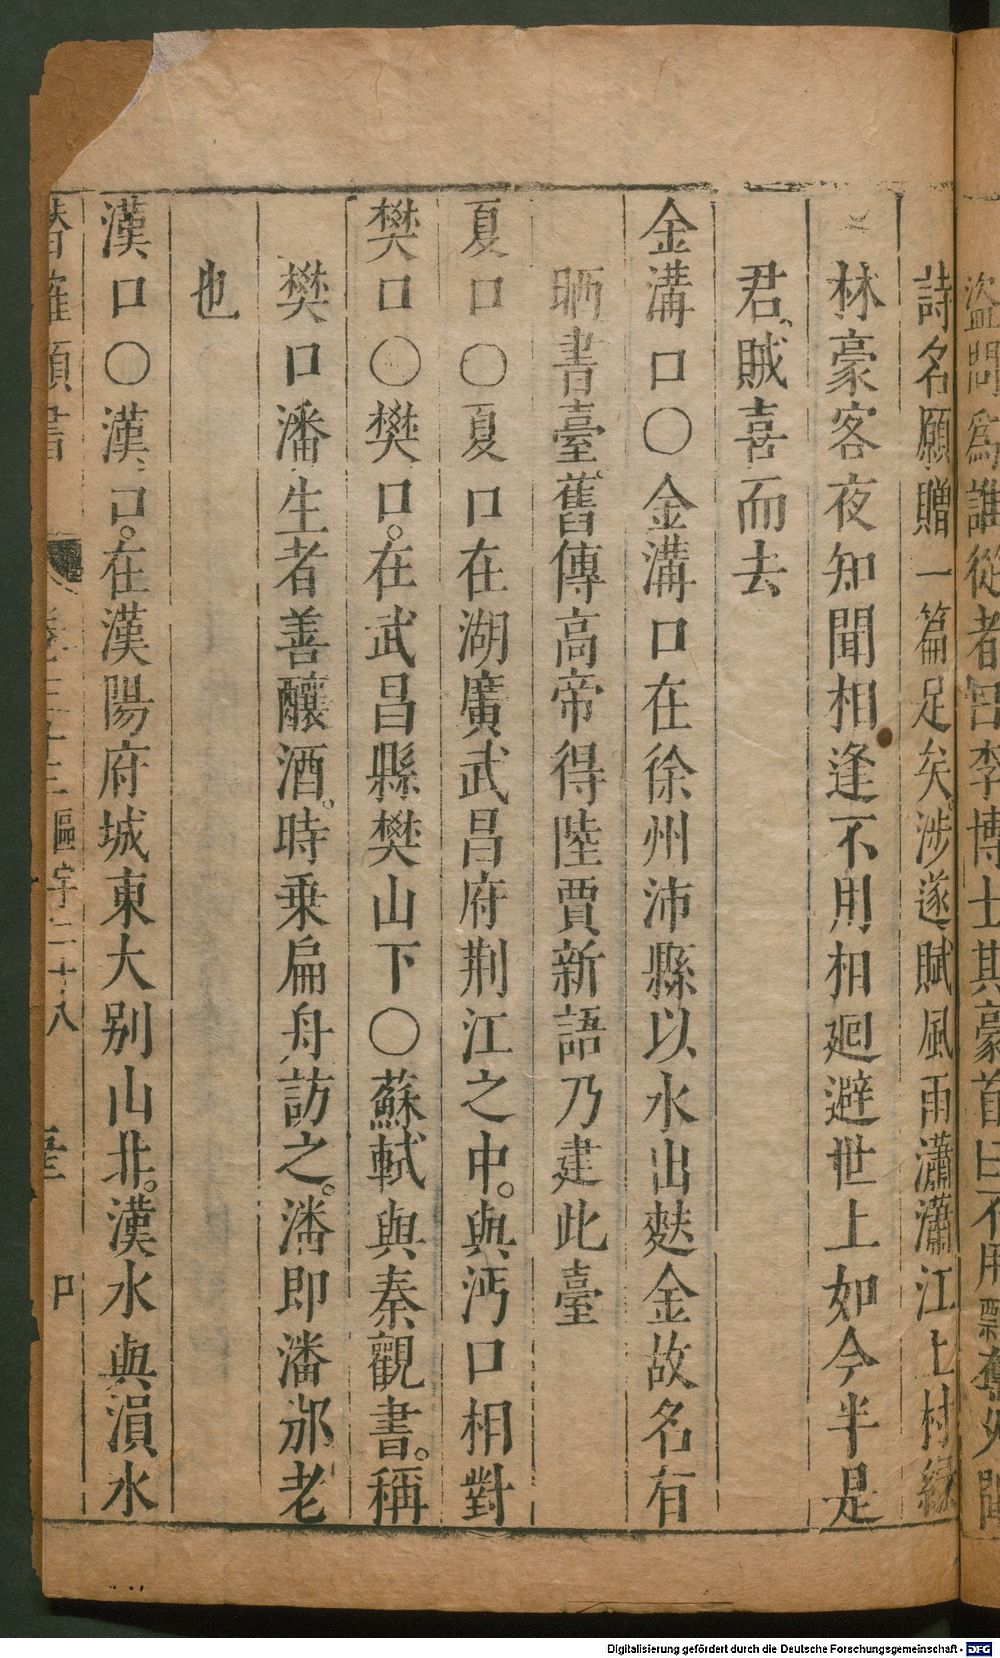 盜問爲誰從者曰李博士其豪首曰不用飄奪久聞
詩名願贈一篇足矣涉遂賦風雨瀟瀟江上村綠
林豪客夜知聞相逢不用相廻避世上如今半是
君賊喜而去
金溝口〇金溝口在徐州沛縣以水出麩金故名有
晒書臺舊傳高帝得陸賈新語乃建此臺
夏口〇夏口在湖廣武昌府荆江之中。與沔口相對
樊口〇樊口。在武昌縣樊山下〇蘇軾與秦觀書。稱
樊口潘生者善釀酒。時乗扁舟訪之。潘即潘邠老
也
漢口〇漢口。在漢陽府城東大别山北。漢水與溳水
潛確類書 卷三十三區宇二十八
Digitalisierung gefördert durch die Deutsche Forschungsgemeinschaft - DFG